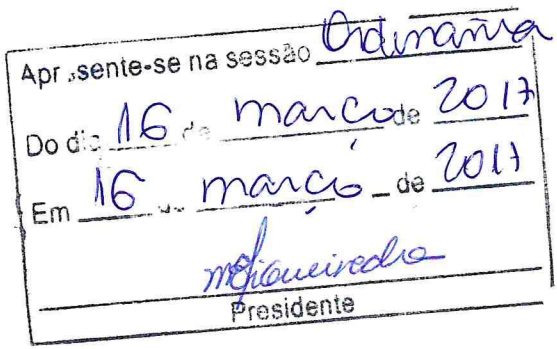 Apresente-se na sessão Ordinária
Do dia 16 de março de 2017
Em 16 de março de 2017
Presidente